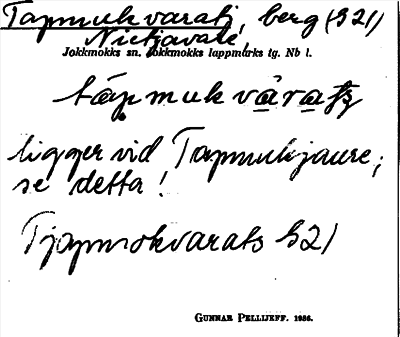 Tapmukvaratj, berg (B21)
Nietjavare,
Jokkmokks sn. Jokkmokks lappmarks tg. Nb l.
tąp̣muk vārat̄ʒ
ligger vid Tapmukjaure;
se detta!
Tjapmokvarats B21
GUNNAR PELLIJEFF. 1986.